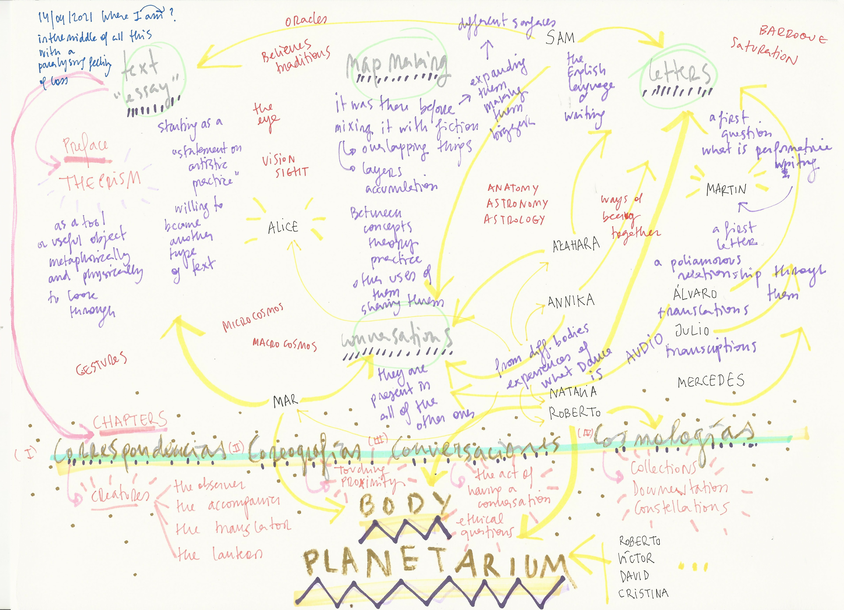 14/04/2021 Where I am?
in the middle of all this
with a
paralysing feeling
of loss
text
"essay"
Preface
THE PRISM
as a tool
a useful object
metaphorically
and physically
to look
through
starting as a
a statement on
artistic
practice"
willing to
become
another
type
of text
GESTURES
ORACLES
Believes
traditions
the
eye
VISION
SIGHT
ALICE
MICROCOSMOS
MACROCOSMOS
MAR
Map Making
it was there before
mixing it with fiction
overlapping things
layers
accumulation
Between
concepts
theory
practice
other uses of
them
sharing them
different surfaces
expanding
them
making
them
bigger
conversations
they are
present in
all of the
other ones
SAM
the
English
language
&
writing
ANATOMY
ASTRONOMY
ASTROLOGY
AZAHARA
ANNIKA
from diff. bodies
experiences of
what Dance
is
NATALIA
ROBERTO
ways of
being
together
AUDIO
letters
BARROQUE
SATURATION
a first
question
what is performative
writing
MARTIN
a first
letter
a poliamorous
relationship through
them
ÁLVARO
translations
JULIO
transcriptions
MERCEDES
CHAPTERS
(I) Correspondencias (II) Coreografías (III) Conversaciones (IV) Cosmologías
CREATURES
the observer
the accompanier
the translator
Touching
PROXIMITY
the act of
having a
conversation
ethical
questions
Collections
Documentation
Constellations
BODY
PLANETARIUM
ROBERTO
VÍCTOR
DAVID
CRISTINA
...